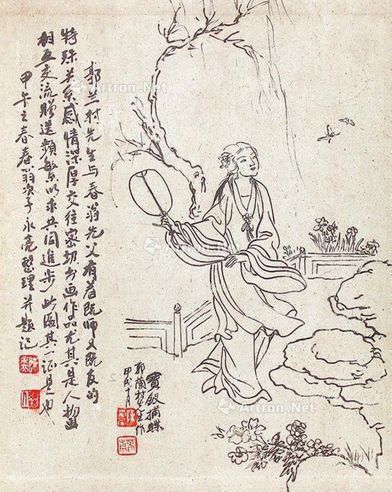 郭兰村先生与春翁先父有着既师又既友的
特殊关系感情深厚交往密切书画作品尤其是人物画
相互交流赠送频繁以求共同进步此图其一证是也
甲午之春春翁次子永亮整理并题记
寶釵捕蝶
郭蘭村
甲戌